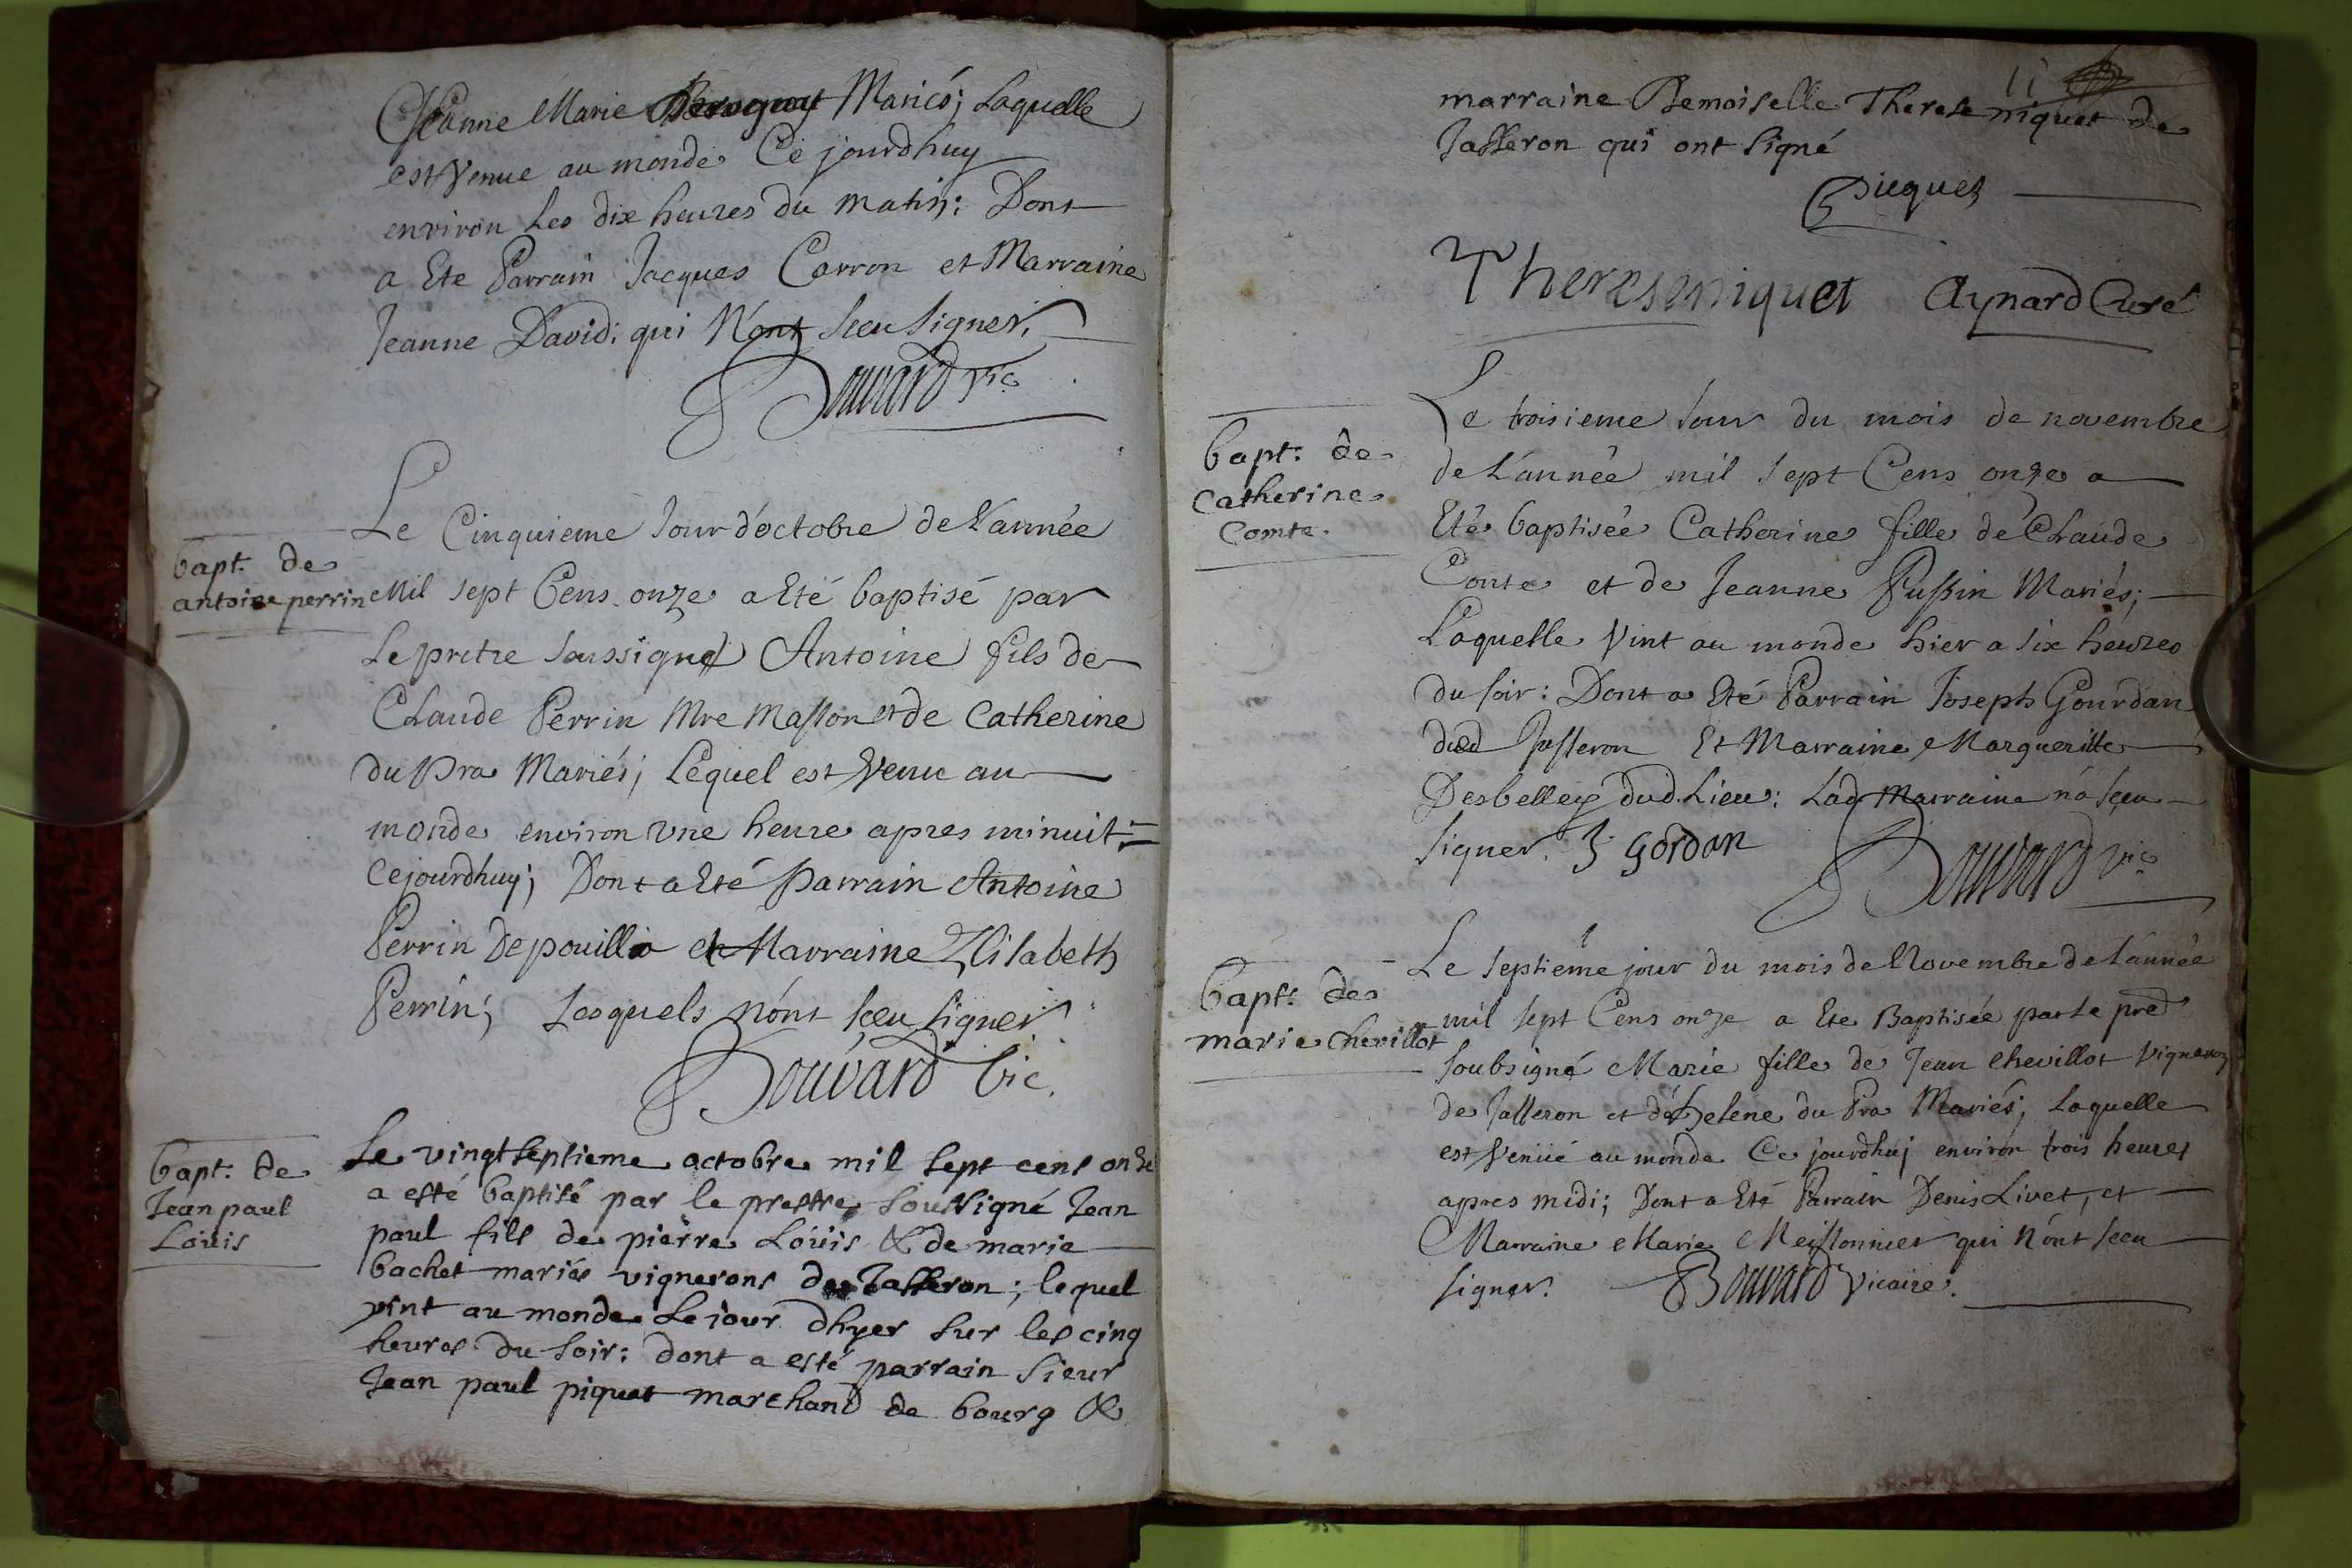 Jeanne Marie Mariés; Laquelle
est Venue au monde Ce jourdhuy
environ Les dix heures du matin: Dont
a Ete Parrain Jacques Carron et Marraine
Jeanne David: qui N'ont sceu signer.
Bouvard vic.
bapt. de
antoine perrin
Le Cinquieme Jour d'octobre de L'année
Mil sept Cens onze a Eté baptisé par
Le pretre soussigné Antoine fils de
Claude Perrin Mre Masson et de Catherine
du Pra Mariés; Lequel est Venu au
monde environ Vne heure apres minuit
Cejourdhuy; Dont a Eté Parrain Antoine
Perrin De pouillia et Marraine Elisabeth
Perrin; Lesquels n'ont sceu signer
Bouvard Vic.
bapt. de
Jean paul
Loüis
Le vingtseptieme octobre mil sept cens onze
a esté baptisé par le prestre soussigné Jean
paul fils de pierre Loüis & de marie
bachet mariés vignerons de Jasseron; lequel
vint au monde Le jour dhyer sur les cinq
heures du soir: dont a esté parrain sieur
Jean paul piquet marchand de bourg &
11
marraine Demoiselle Therese niquet de
Jasseron qui ont signé
Picquet
Therese niquet Aynard Curé
bapt. de
Catherine
Comte.
Le troisieme Jour du mois de novembre
de L'année mil sept Cens onze a
Eté baptisée Catherine fille de Claude
Conte et de Jeanne Pussin Mariés;
Laquelle Vint au monde hier a six heures
du soir: Dont a Eté Parrain Joseph Gourdan
dud Jasseron Et Marraine Margueritte
Desbelley dud. Lieu: Lad Marraine n'a sceu
signer. J gordan
Bouvard vic
bapt. de
marie chevillot
Le septiéme jour du mois de Novembre de L'année
mil sept Cens onze a Ete Baptisée par Le pred
soubsigné Marie fille de Jean chevillot vigneron
de Jasseron et de helene du Pra Mariés; Laquelle
est Venüe au monde Ce jourdhuj environ trois heures
apres midi; Dont a Eté Parrain Denis Livet, et
Marraine Marie Meissonnier qui N'ont sceu
signer. Bouvard Vicaire.